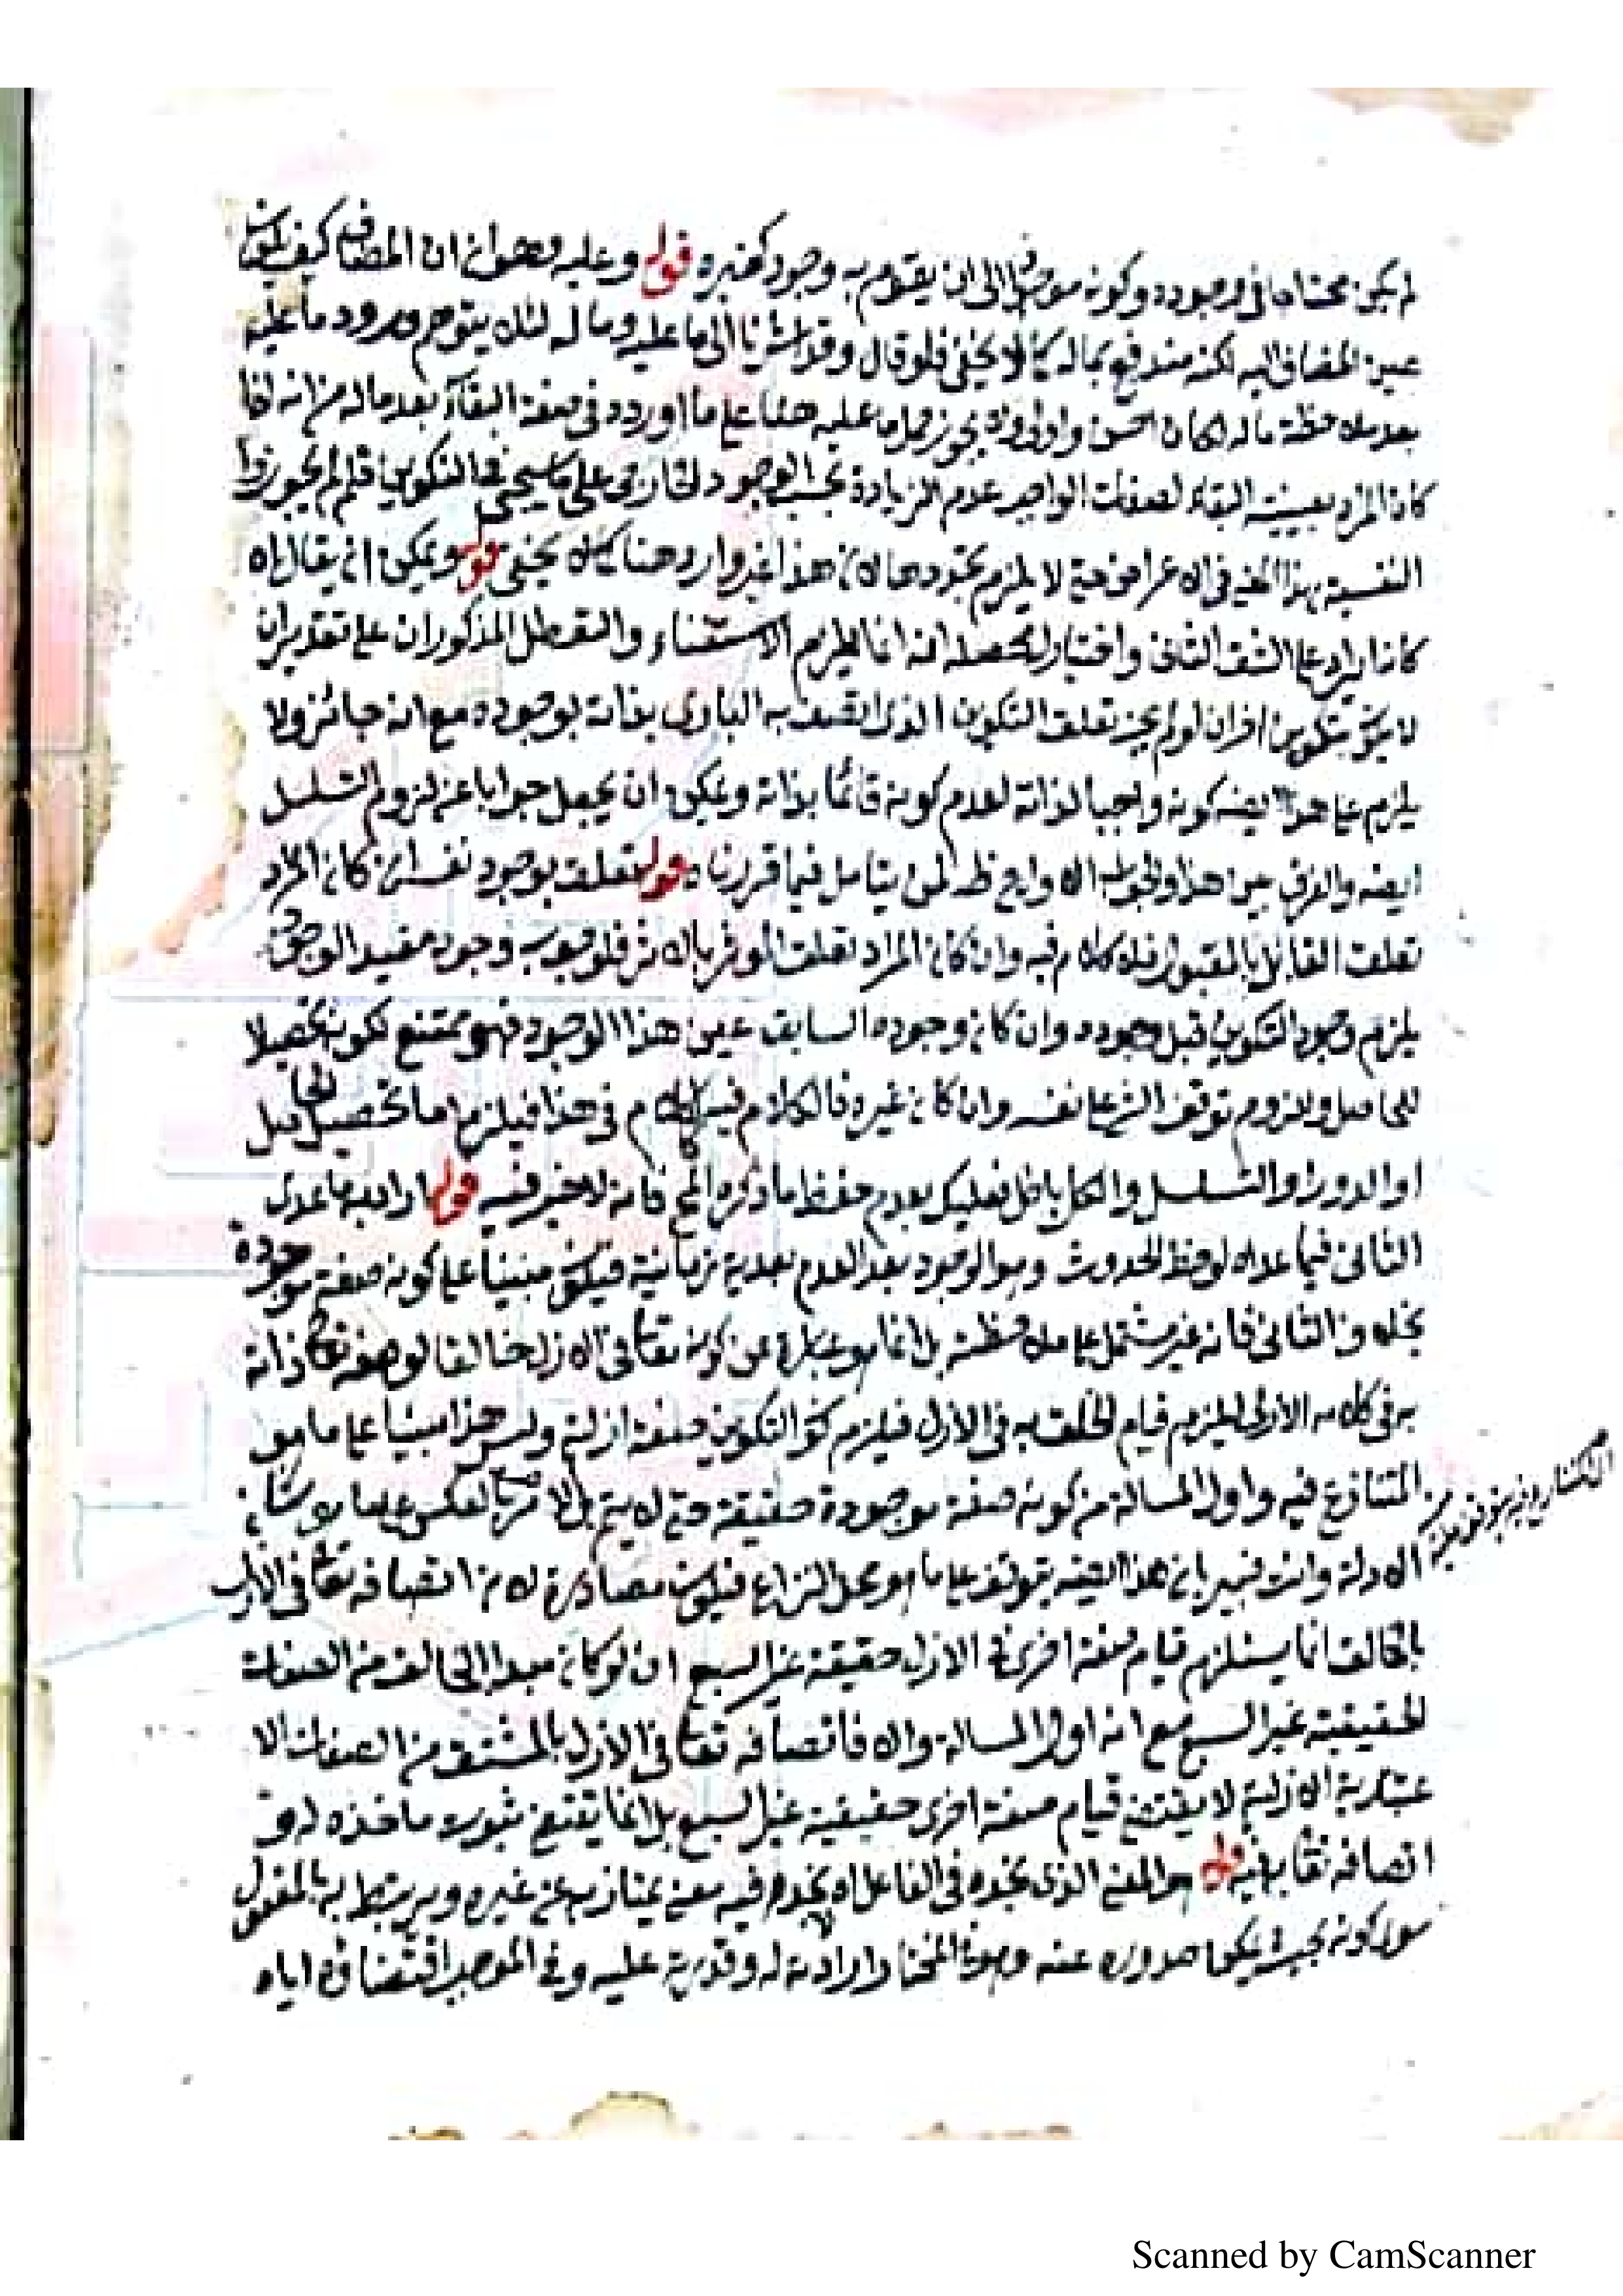 لم يكن محتاجا في وجوده وكونه موجودا الى ان يقوم به وجود كغيره قوله وعليه وهو ان المضاف كيف يكون
عين المضاف اليه لكنه مندفع بماله كما لا يخفى فلو قال وقد اشرنا الى ما عليه وماله لئلا يتوهم ورود ما عليه
بعد ملاحظة ماله لكان احسن واولى ولا يجوز حمل ما عليه هنا على ما اورده في صفة البقاء بعد ماله من انه اذا
كان المراد بعينية البقاء لصفات الواجب عدم الزيادة بحسب الوجود الخارجي على ما سيجئ في التكوين فلم لم يجوزوا
النفسية بهذا المعنى في الاعراض حتى لا يلزم تجددها لان هذا غير وارد هنا كما لا يخفى قوله ويمكن ان يقال اه
كان ايراد على الشق الثاني واختيار له محصله انه انما يلزم الاستغناء والتعطل المذكوران على تقدير ان
لا يكون بتكوين اخر ان لو لم يجز تعلق التكوين الذي اتصف به الباري بذاته بوجوده مع انه جائز ولا
يلزم على هذا ايضا كونه واجبا لذاته لعدم كونه قائما بذاته ويمكن ان يجعل جوابا عن لزوم التسلسل
ايضا والفرق بين هذا والجواب الاول واضح ظ لمن يتامل فيما قررناه قوله تعلق بوجود نفسه ان كان المراد
تعلق القابل بالمقبول فلا كلام فيه وان كان المراد تعلق المؤثر بالاثر فلوجوب وجود مفيد الوجود
يلزم وجود التكوين قبل وجوده وان كان وجوده السابق عين هذا الوجود فهو ممتنع لكونه تحصيلا
للحاصل ولزوم توقف الشئ على نفسه وان كان غيره فالكلام فيه كالكلام في هذا فيلزم اما تحصيل الحاصل
او الدور او التسلسل والكل باطل فعليك بعدم حفظ ما ذكره المح فانه لا خير فيه قوله اراد به ما عدى
الثاني فيما عداه لوحظ الحدوث وهو الوجود بعد العدم بعدية زمانية فيكون مبنيا على كونه صفة موجودة
بخلاف الثاني فانه غير مشتمل على ملاحظته بل انما هو عبارة عن كونه تعالى في الازل خالقا لوصفه تعالى ذاته
به في كلامه الازلي فيلزم قيام الخلق به في الازل فيلزم كون التكوين صفة ازلية وليس هذا مبنيا على ما هو
المتنازع فيه واول المسالة من كونه صفة موجودة حقيقة حتى لا يتم بل الامر بالعكس على ما هو شان
الادلة وانت خبير بان هذا ايضا يتوقف على ما هو محل النزاع فيكون مصادرة لان اتصافه تعالى في الازل
بالخالق انما يستلزم قيام صفة اخرى في الازل حقيقة غير السبع ان لو كان مبدا الخالق من الصفات
الحقيقية غير السبع مع انه اول المسالة والا فاتصافه تعالى في الازل بالمشتق من الصفات الا
عتبارية الازلية لا يقتضي قيام صفة اخرى حقيقية غير السبع بل انما يقتضي ثبوت ماخذه له و
اتصافه تعالى به فيه قوله هو المعنى الذي نجده في الفاعل اه نجده فيه معنى يمتاز به عن غيره ويرتبط به بالمفعول
هو كونه بحيث يمكن صدوره عنه وهو في المختار ارادته له وقدرته عليه وفي الموجب اقتضاؤه اياه
Scanned by CamScanner